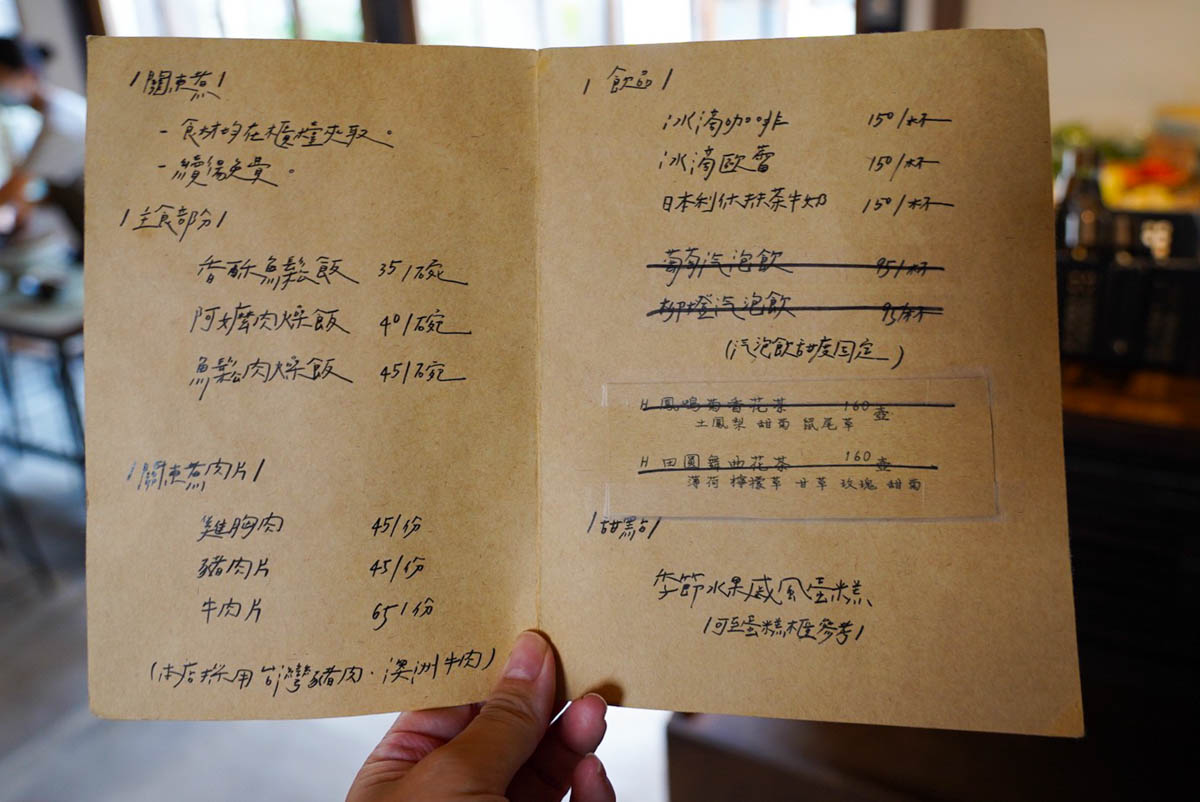 /關東煮/
- 食材均在櫃檯夾取。
- 續湯免費。
/主食部份/
香酥魚鬆飯 35/碗
阿嬤肉燥飯 40/碗
魚鬆肉燥飯 45/碗
/關東煮肉片/
雞胸肉 45/份
豬肉片 45/份
牛肉片 65/份
(本店採用台灣豬肉.澳洲牛肉)
/飲品/
冰滴咖啡 150/杯
冰滴歐蕾 150/杯
日本利休抹茶牛奶 150/杯
葡萄汽泡飲 95/杯
柳橙汽泡飲 95/杯
(汽泡飲甜度固定)
H 鳳鳴菊香花茶 160壺
土鳳梨 甜菊 鼠尾草
H 田園舞曲花茶 160壺
薄荷 檸檬草 甘草 玫瑰 甜菊
/甜點/
季節水果戚風蛋糕
/可至蛋糕櫃參考/